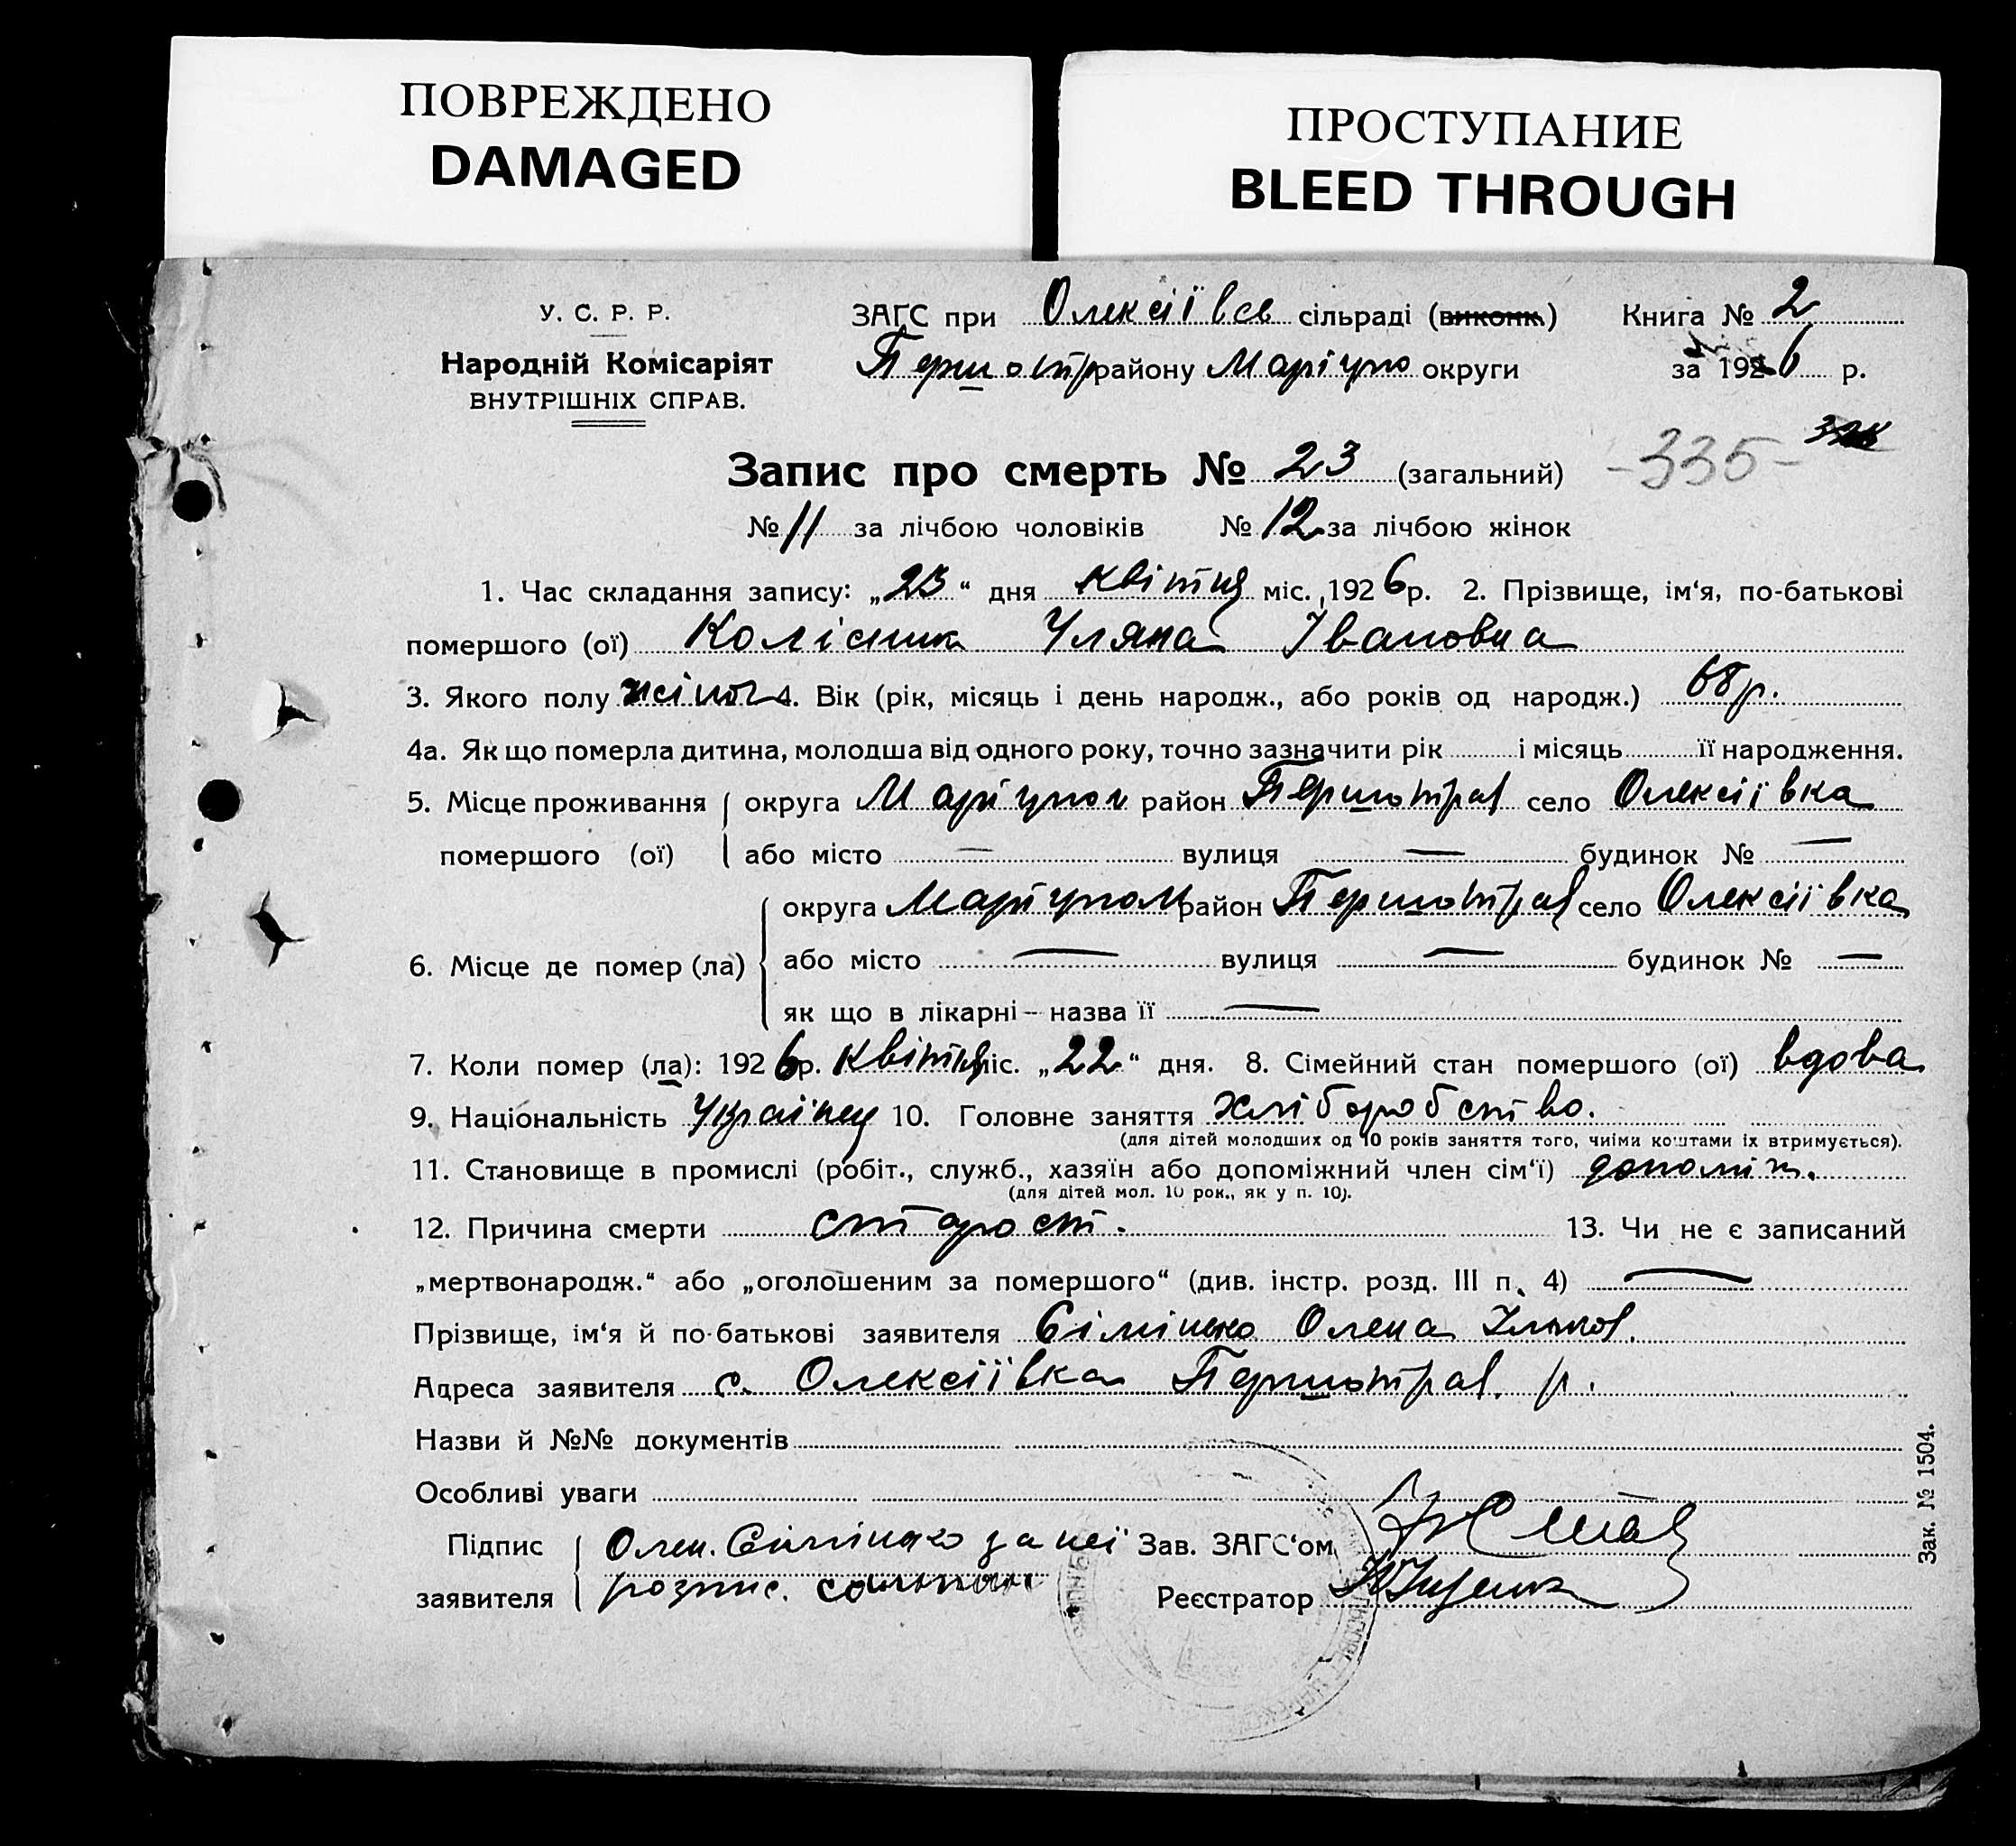 ПОВРЕЖДЕНО
DAMAGED
ПРОСТУПАНИЕ
BLEED THROUGH
У. С. Р. Р.
Народній Комісаріят
ВНУТРІШНІХ СПРАВ.
ЗАГС при Олексіївсв сільраді (виконк.) Книга № 2
Першотр району Маріупо округи за 1926 р.
-335-
Запис про смерть № 23 (загальний)
№ 11 за лічбою чоловіків № 12 за лічбою жінок
1. Час складання запису: „23“ дня квітня міс. 1926 р. 2. Прізвище, ім‘я, по-батькові
помершого (ої) Колісник Уляна Івановна
3. Якого полу жіноч 4. Вік (рік, місяць і день народж., або років од народж.) 68 р.
4а. Як що померла дитина, молодша від одного року, точно зазначити рік і місяць її народження.
5. Місце проживання округа Маріупол район Першотрав село Олексіївка
помершого (ої) або місто — вулиця — будинок № —
округа Маріупол район Першотрав село Олексіївка
6. Місце де помер (ла) або місто — вулиця — будинок № —
як що в лікарні — назва її —
7. Коли помер (ла): 1926 р. квітня міс. „22“ дня. 8. Сімейний стан помершого (ої) вдова
9. Національність Україн 10. Головне заняття хліборобство.
(для дітей молодших од 10 років заняття того, чиїми коштами їх втримується).
11. Становище в промислі (робіт., служб., хазяїн або допоміжний член сім‘ї) допоміж.
(для дітей мол. 10 рок., як у п. 10).
12. Причина смерти старост. 13. Чи не є записаний
„мертвонародж.“ або „оголошеним за помершого“ (див. інстр. розд. III п. 4) —
Прізвище, ім‘я й по-батькові заявителя Олена
Адреса заявителя с. Олексіївка Першотрав. р.
Назви й №№ документів
Особливі уваги
Підпис Олен. за неї Зав. ЗАГС‘ом
заявителя розпис. Реєстратор
Зак. № 1504.